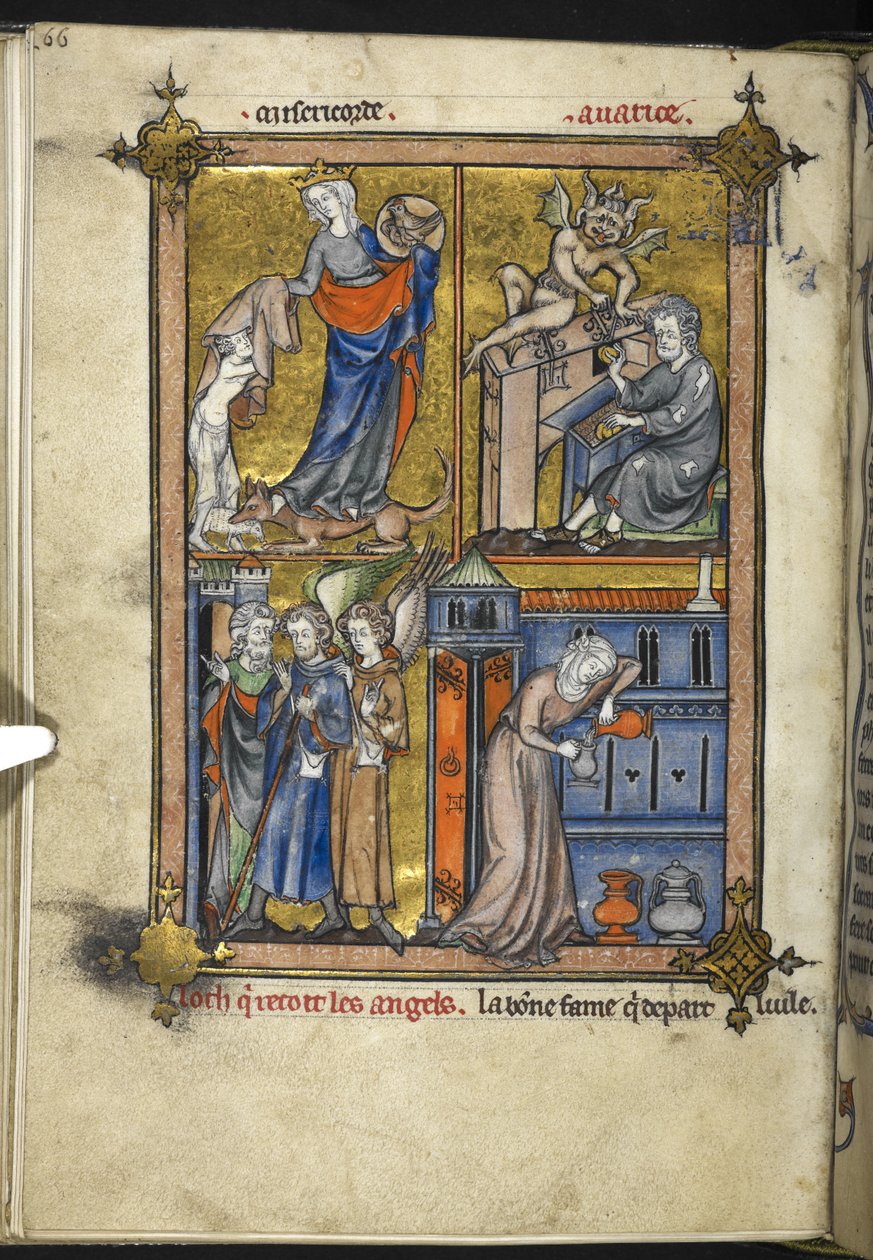 66
.misericorde.
.avarice.
loth q̃ recoit les angels. la bõne fame q̃ depart luile.